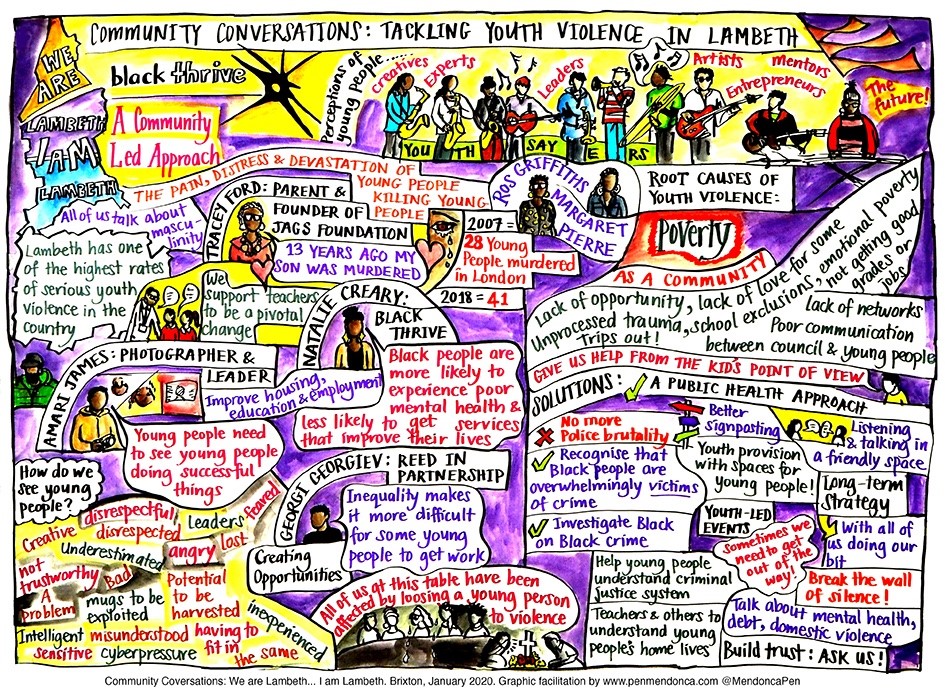 COMMUNITY CONVERSATIONS: TACKLING YOUTH VIOLENCE IN LAMBETH
WE
ARE
LAMBETH
I AM
LAMBETH
black thrive
A Community
Led Approach
Perceptions of
young People....
Creatives
Experts
Leaders
Artists
mentors
Entrepreneurs
The
future!
YOU TH SAY E RS
THE PAIN, DISTRESS & DEVASTATION OF
YOUNG PEOPLE
KILLING YOUNG
PEOPLE
All of us talk about
mascu
linity
Lambeth has one
of the highest rates
of serious youth
violence in the
country
TRACEY FORD: PARENT &
FOUNDER OF
JAGS FOUNDATION
13 YEARS AGO MY
SON WAS MURDERED
We
support teachers
to be a pivotal
change
2007 =
28 Young
People murdered
in London
2018 = 41
ROS GRIFFITHS
MARGARET
PIERRE
ROOT CAUSES OF
YOUTH VIOLENCE:
Poverty
AS A COMMUNITY
Lack of opportunity, lack of love for some
Unprocessed trauma, school exclusions, emotional poverty
Trips out!
not getting good
grades or
jobs
Lack of networks
Poor communication
between council & young people
GIVE US HELP FROM THE KID'S POINT OF VIEW
NATALIE CREARY:
BLACK
THRIVE
Improve housing,
education & employment
Black people are
more likely to
experience poor
mental health &
less likely to get services
that improve their lives
AMARI JAMES: PHOTOGRAPHER &
LEADER
Young people need
to see young people
doing successful
things
How do we
see young
people?
Creative
disrespectful,
disrespected
Leaders
feared
Underestimated
angry
Lost
not
trustworthy
Bad
A
problem
mugs to be
exploited
Potential
to be
harvested
inexperienced
Intelligent
misunderstood
having to
fit in
sensitive
cyberpressure
the same
GEORGI GEORGIEV: REED IN
PARTNERSHIP
Inequality makes
it more difficult
for some young
people to get work
Creating
Opportunities
All of us at this table have been
affected by loosing a young person
to violence
SOLUTIONS:
A PUBLIC HEALTH APPROACH
No more
Police brutality
Better
signposting
Listening
& talking in
a friendly space
Recognise that
Black people are
overwhelmingly victims
of crime
Youth provision
with spaces for
young people!
Long-term
Strategy
Investigate Black
on Black crime
YOUTH-LED
EVENTS
Sometimes we
need to get
out of the
way!
With all of
us doing our
bit
Help young people
understand criminal
justice system
Break the wall
of silence!
Teachers & others to
understand young
people's home lives
Talk about mental health,
debt, domestic violence
Build trust: ASK US!
Community Coversations: We are Lambeth... I am Lambeth. Brixton, January 2020. Graphic facilitation by www.penmendonca.com @MendoncaPen